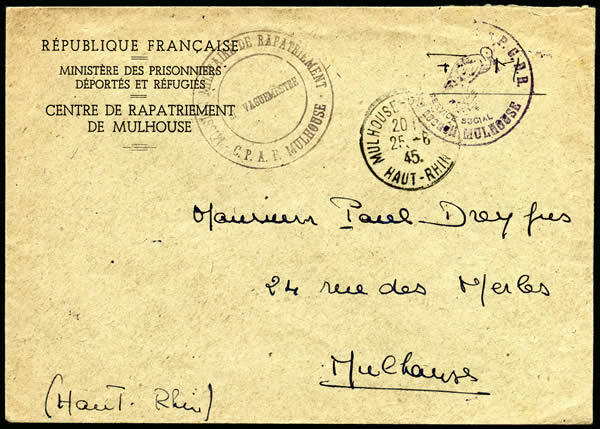 RÉPUBLIQUE FRANÇAISE
MINISTÈRE DES PRISONNIERS
DÉPORTÉS ET RÉFUGIÉS
CENTRE DE RAPATRIEMENT
DE MULHOUSE
DE RAPATRIEMENT
VAGUEMESTRE
C.P.A.R. MULHOUSE
MULHOUSE
20
25-6
45.
HAUT-RHIN
SOCIAL
MULHOUSE
Monsieur Paul Dreyfus
24 rue des Merles
Mulhouse
(Haut-Rhin)